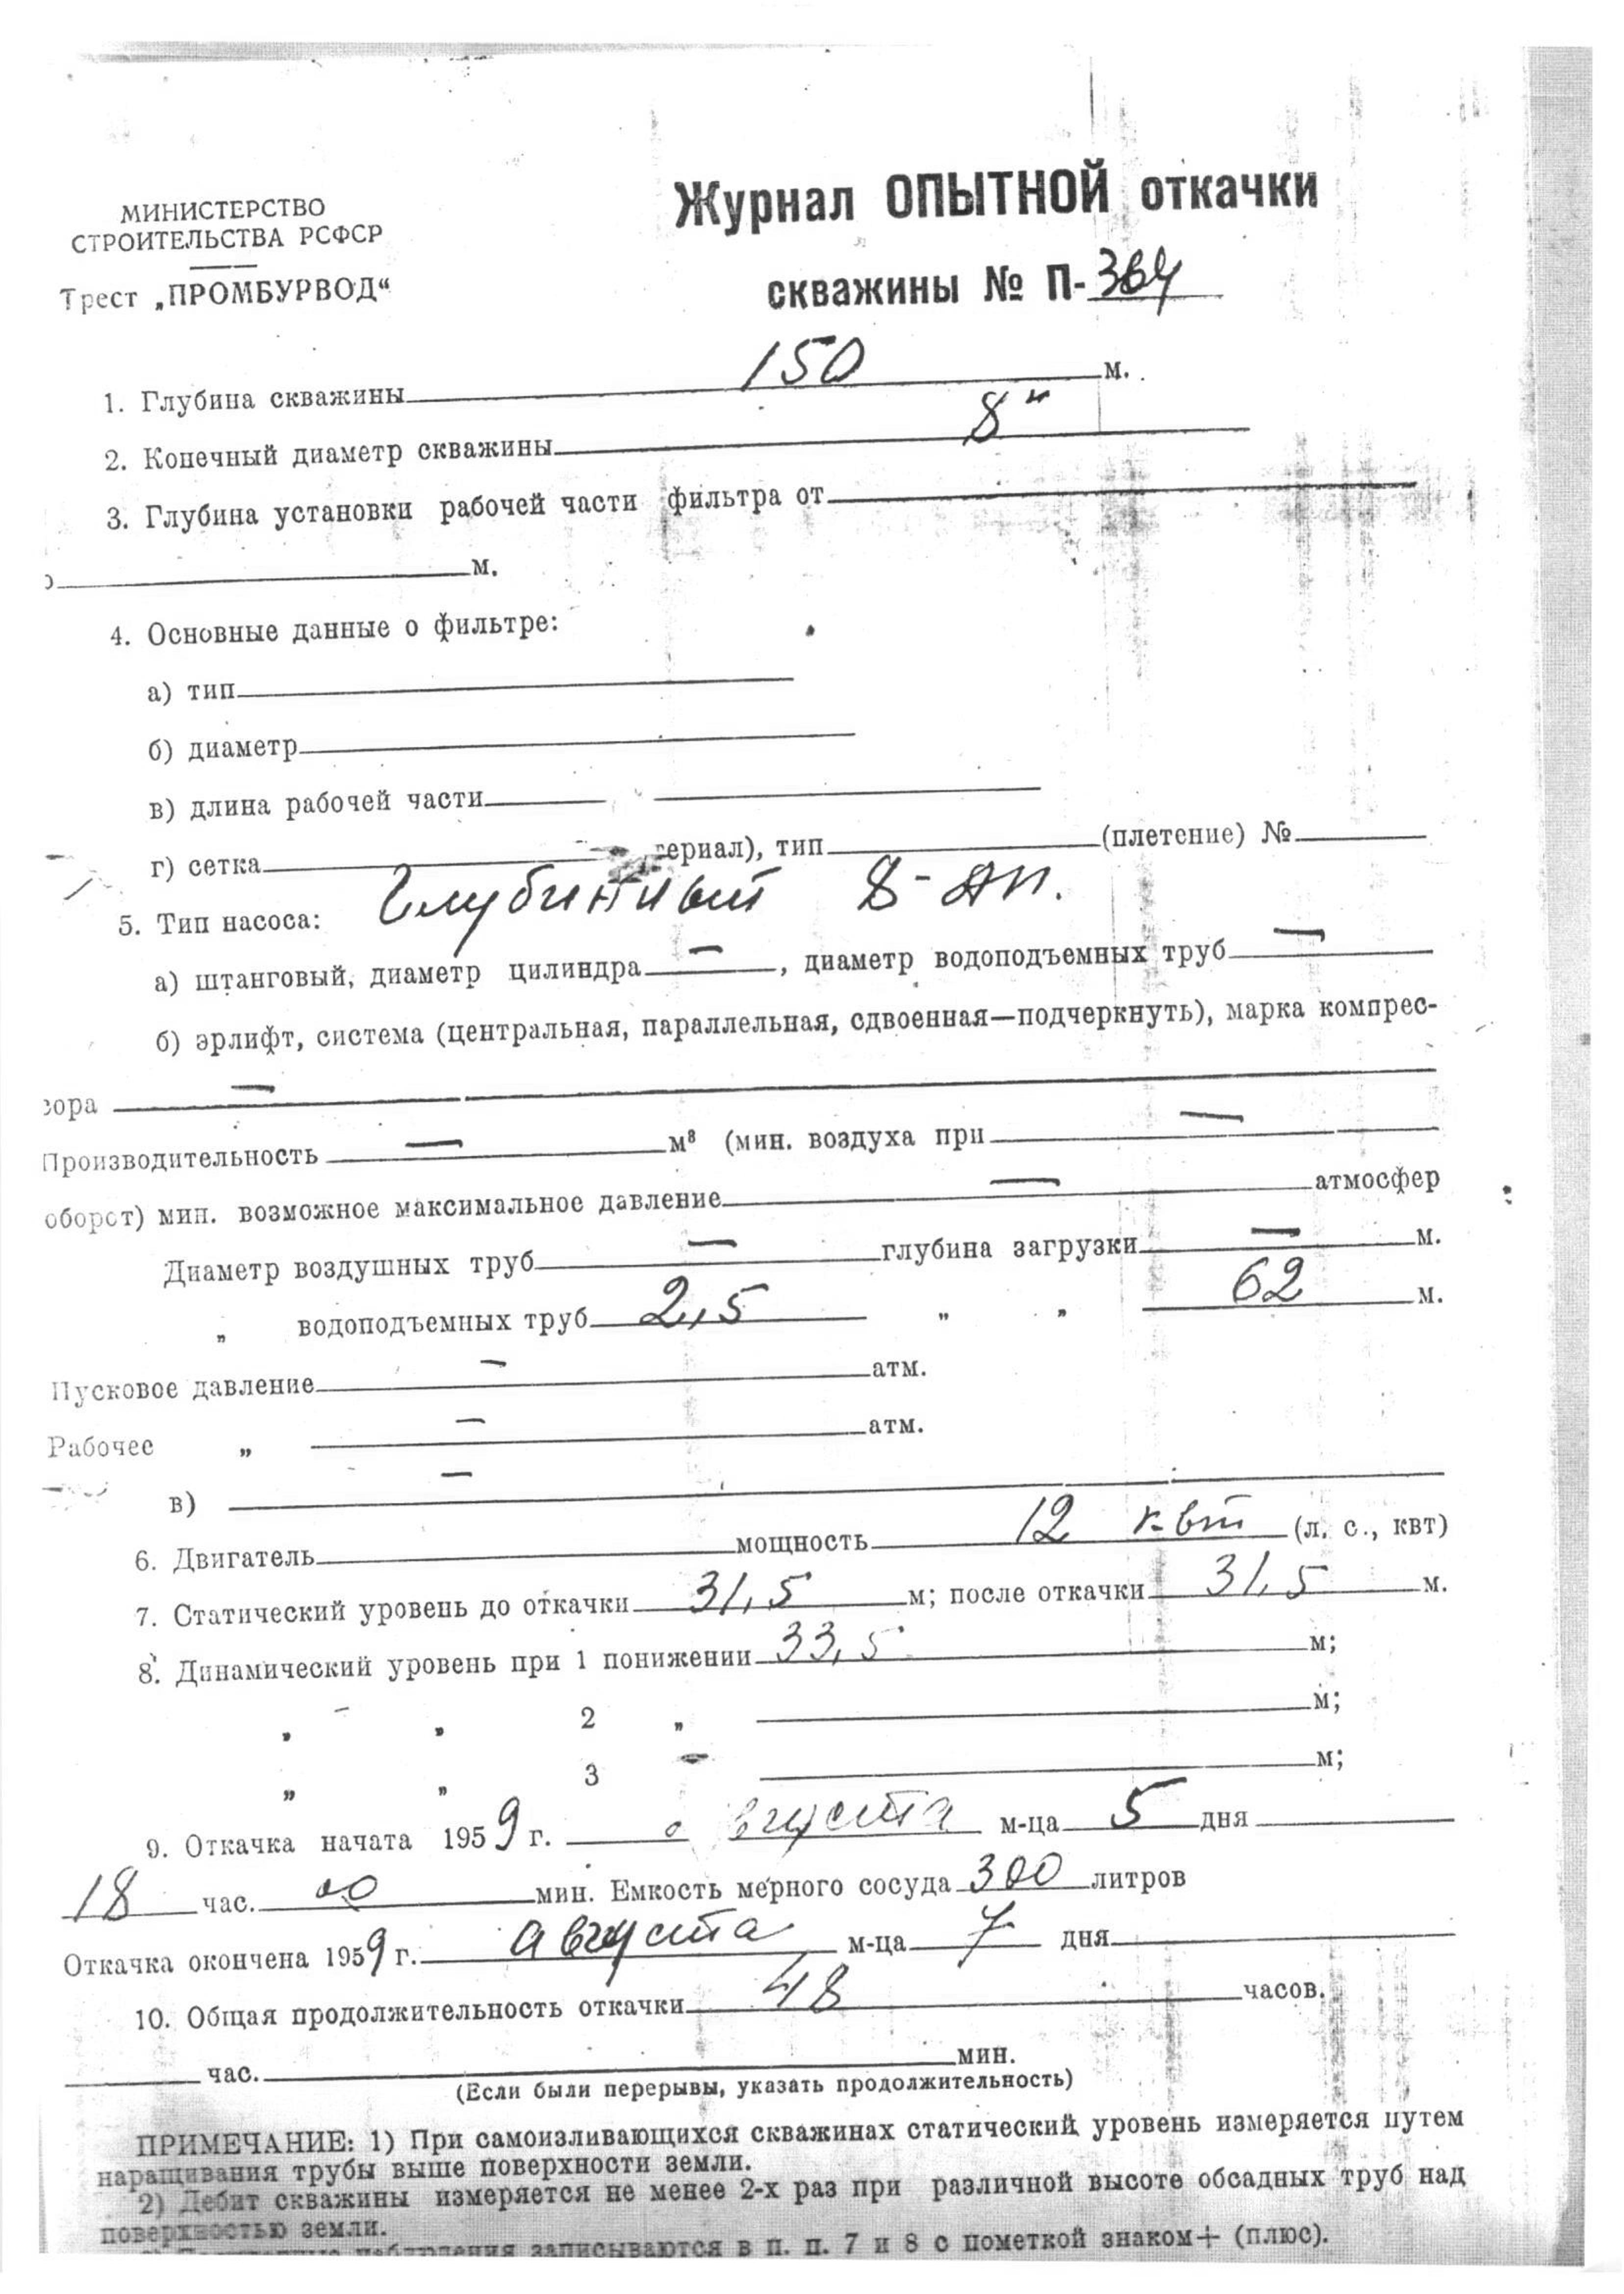 МИНИСТЕРСТВО
СТРОИТЕЛЬСТВА РСФСР
Трест „ПРОМБУРВОД“
Журнал ОПЫТНОЙ откачки
скважины № П-364
1. Глубина скважины 150 м.
2. Конечный диаметр скважины 8"
3. Глубина установки рабочей части фильтра от
м.
4. Основные данные о фильтре:
а) тип
б) диаметр
в) длина рабочей части
г) сетка териал), тип (плетение) №
5. Тип насоса: Глубинный 8-АП.
а) штанговый, диаметр цилиндра — , диаметр водоподъемных труб —
б) эрлифт, система (центральная, параллельная, сдвоенная—подчеркнуть), марка компрес-
сора —
Производительность — м³ (мин. воздуха при —
оборот) мин. возможное максимальное давление — атмосфер
Диаметр воздушных труб — глубина загрузки — м.
„ водоподъемных труб 2,5 „ „ 62 м.
Пусковое давление — атм.
Рабочее „ — атм.
в) —
6. Двигатель мощность 12 квт (л. с., квт)
7. Статический уровень до откачки 31,5 м; после откачки 31,5 м.
8. Динамический уровень при 1 понижении 33,5 м;
„ „ 2 „ м;
„ „ 3 „ м;
9. Откачка начата 1959 г. августа м-ца 5 дня
18 час. 00 мин. Емкость мерного сосуда 300 литров
Откачка окончена 1959 г. августа м-ца 7 дня
10. Общая продолжительность откачки 48 часов.
час. мин.
(Если были перерывы, указать продолжительность)
ПРИМЕЧАНИЕ: 1) При самоизливающихся скважинах статический уровень измеряется путем
наращивания трубы выше поверхности земли.
2) Дебит скважины измеряется не менее 2-х раз при различной высоте обсадных труб над
поверхностью земли.
наблюдения записываются в п. п. 7 и 8 с пометкой знаком + (плюс).